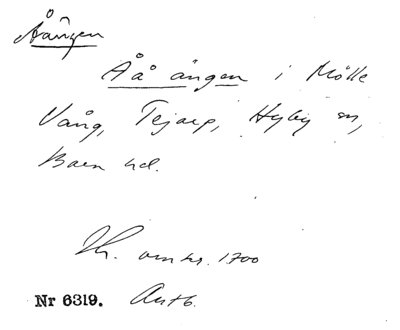 Åången
Åå ången i Mölle
Vång, Tejarp, Hyby sn,
Bara hd.
omkr. 1700
Nr 6319. Antb.